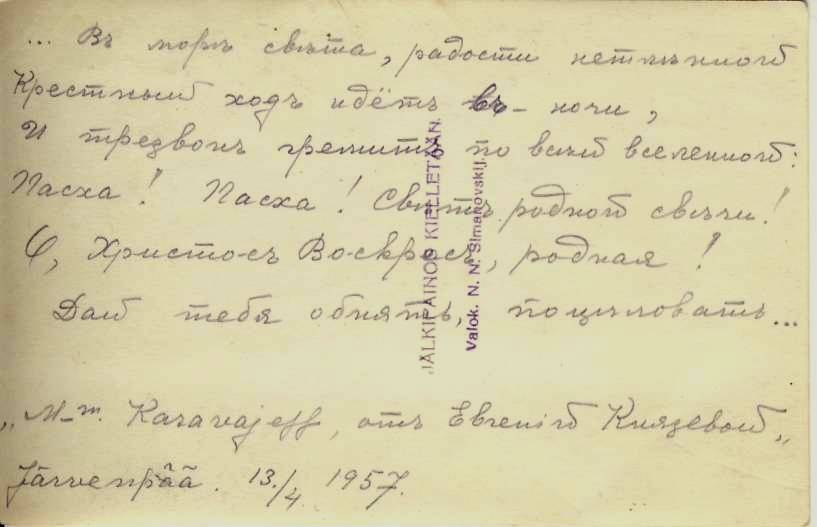 ... Въ морѣ свѣта, радости нетлѣнной
Крестный ходъ идётъ въ ночи,
И трезвонъ гремитъ по всей вселенной:
Пасха! Пасха! Свѣтъ родной свѣчи!
О, Христосъ Воскресъ, родная!
Дай тебя обнять, поцѣловать...
„M-m. Karavajeff, отъ Евгеніи Князевой„
Järvenpää. 13./4 1957.
JÄLKIPAINOS KIELLETÄÄN.
Valok. N. N. Simanovskij.